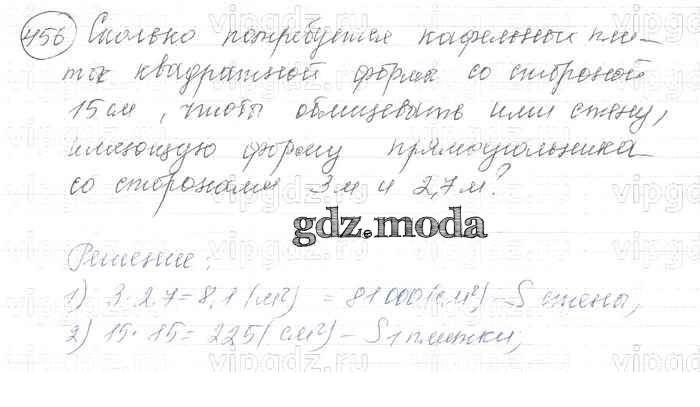 456 Сколько потребуется кафельных пли-
ток квадратной формы со стороной
15 см, чтобы облицевать ими стену,
имеющую форму прямоугольника
со сторонами 3 м и 2,7 м?
gdz.moda
Решение:
1) 3·2,7=8,1 (м²) = 81000 (см²) – S стены,
2) 15·15=225 (см²) – S 1 плитки,